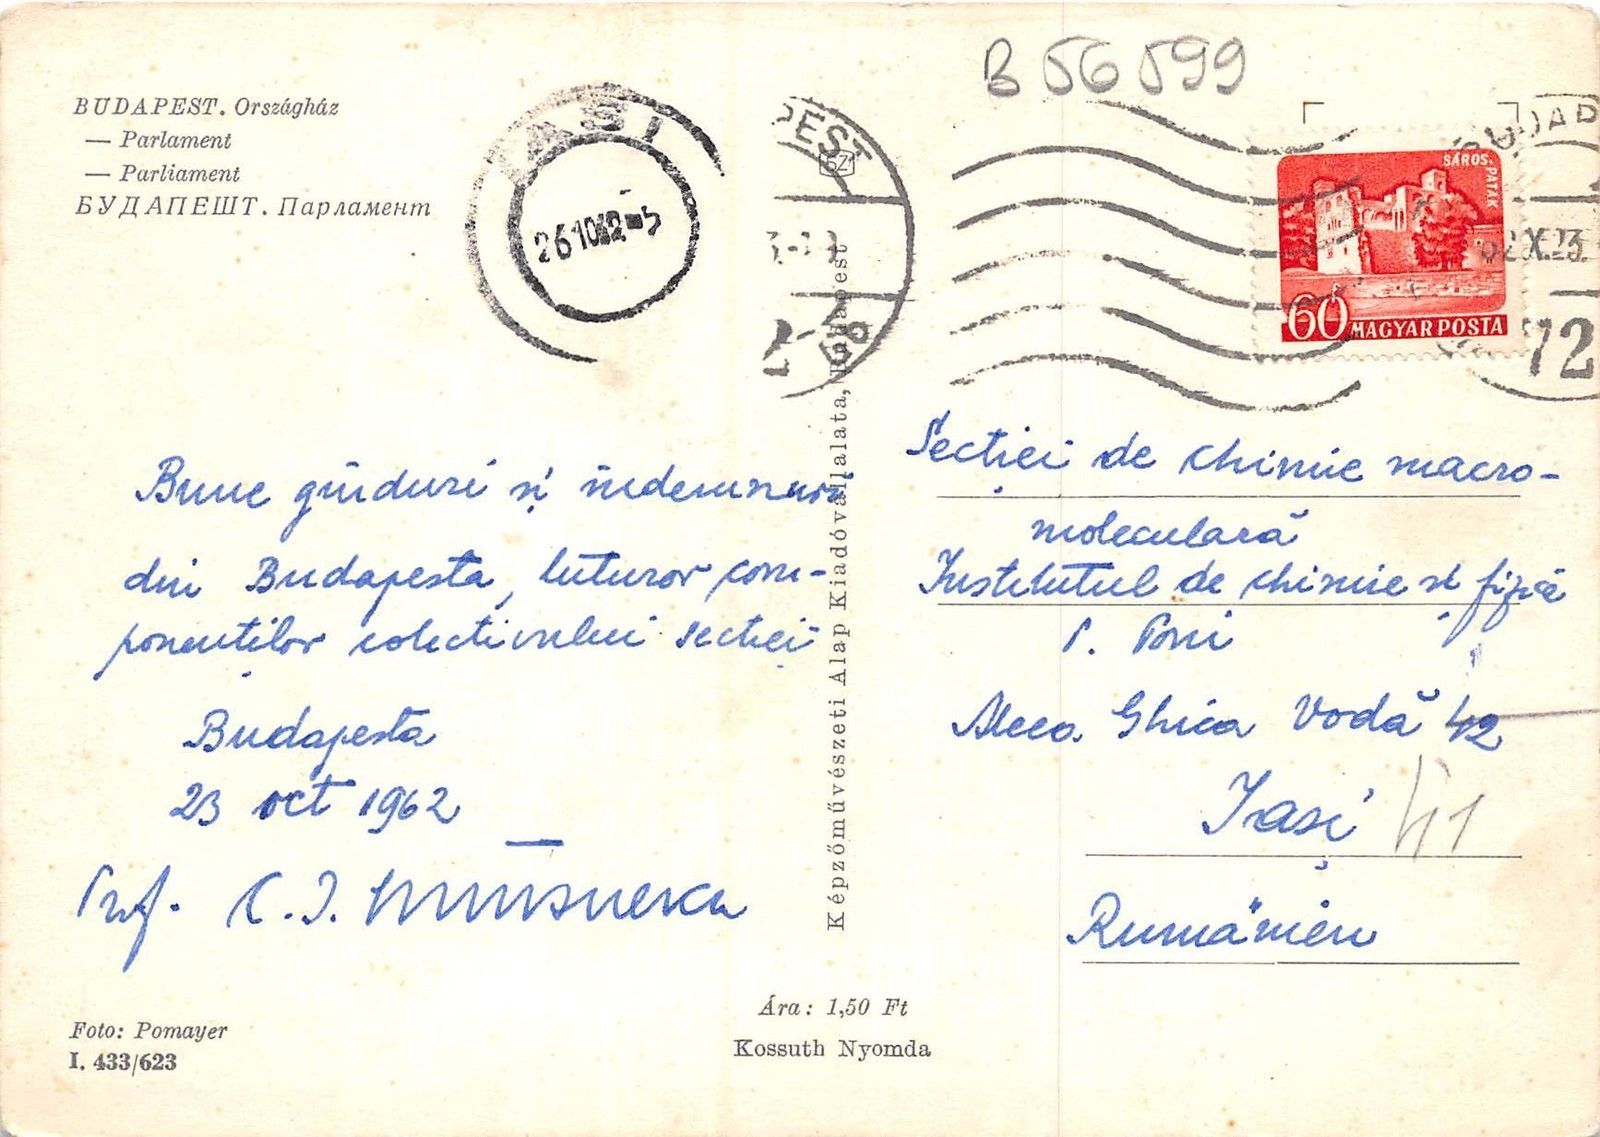 B 56599
BUDAPEST. Országház
— Parlament
— Parliament
БУДАПЕШТ. Парламент
IAȘI
26 10 62 - 5
PEST
BUDAP
62 X. 23.
72
SÁROS-
PATAK
60 MAGYAR POSTA
Bune gînduri și îndemnuri
din Budapesta, tuturor com-
ponenților colectivului secției
Budapesta
23 oct 1962
Prof. C. I.
Képzőművészeti Alap Kiadóvállalata, Budapest
Secției de chimie macro-
moleculară
Institutul de chimie și fizică
P. Poni
Aleea Ghica Vodă 42
41
Iași
Rumänien
Ára: 1,50 Ft
Kossuth Nyomda
Foto: Pomayer
I. 433/623